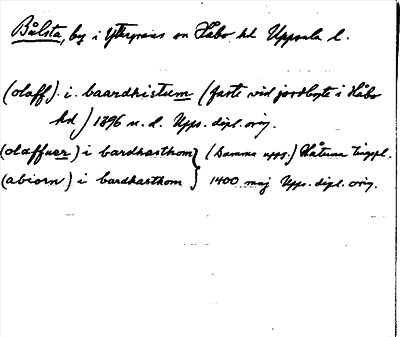 Bålsta, by i Yttergrans sn Håbo hd Uppsala l.
(olaff) i baardhistum (faste vid jordbyte i Håbo
hd) 1396 u. d. Upps. dipl. orig.
(olaffuer) i bardhasthom } (Samma upps.) Håtuna tingpl.
(abiorn) i bardhasthom } 1400 maj Upps. dipl. orig.